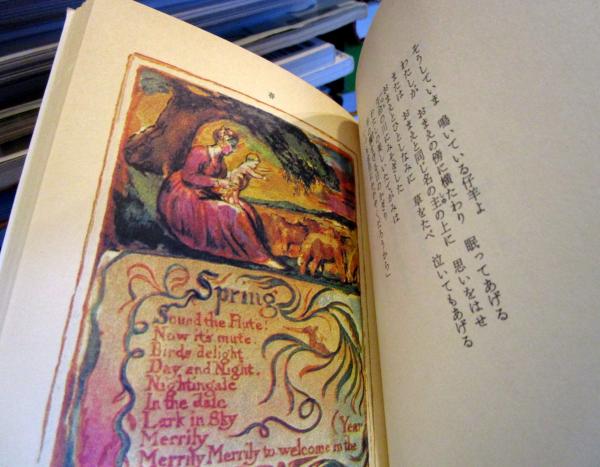 Spring
Sound the Flute!
Now it's mute.
Birds delight
Day and Night.
Nightingale
In the dale
Lark in Sky
Merrily
Merrily Merrily to welcome in the
(Year
そうしていま 鳴いている仔羊よ
わたしが おまえの傍に横たわり 眠ってあげる
または おまえと同じ名の主の上に 思いをはせ
おまえとひとしなみに 草をたべ 泣いてもあげる
川にみそぎした